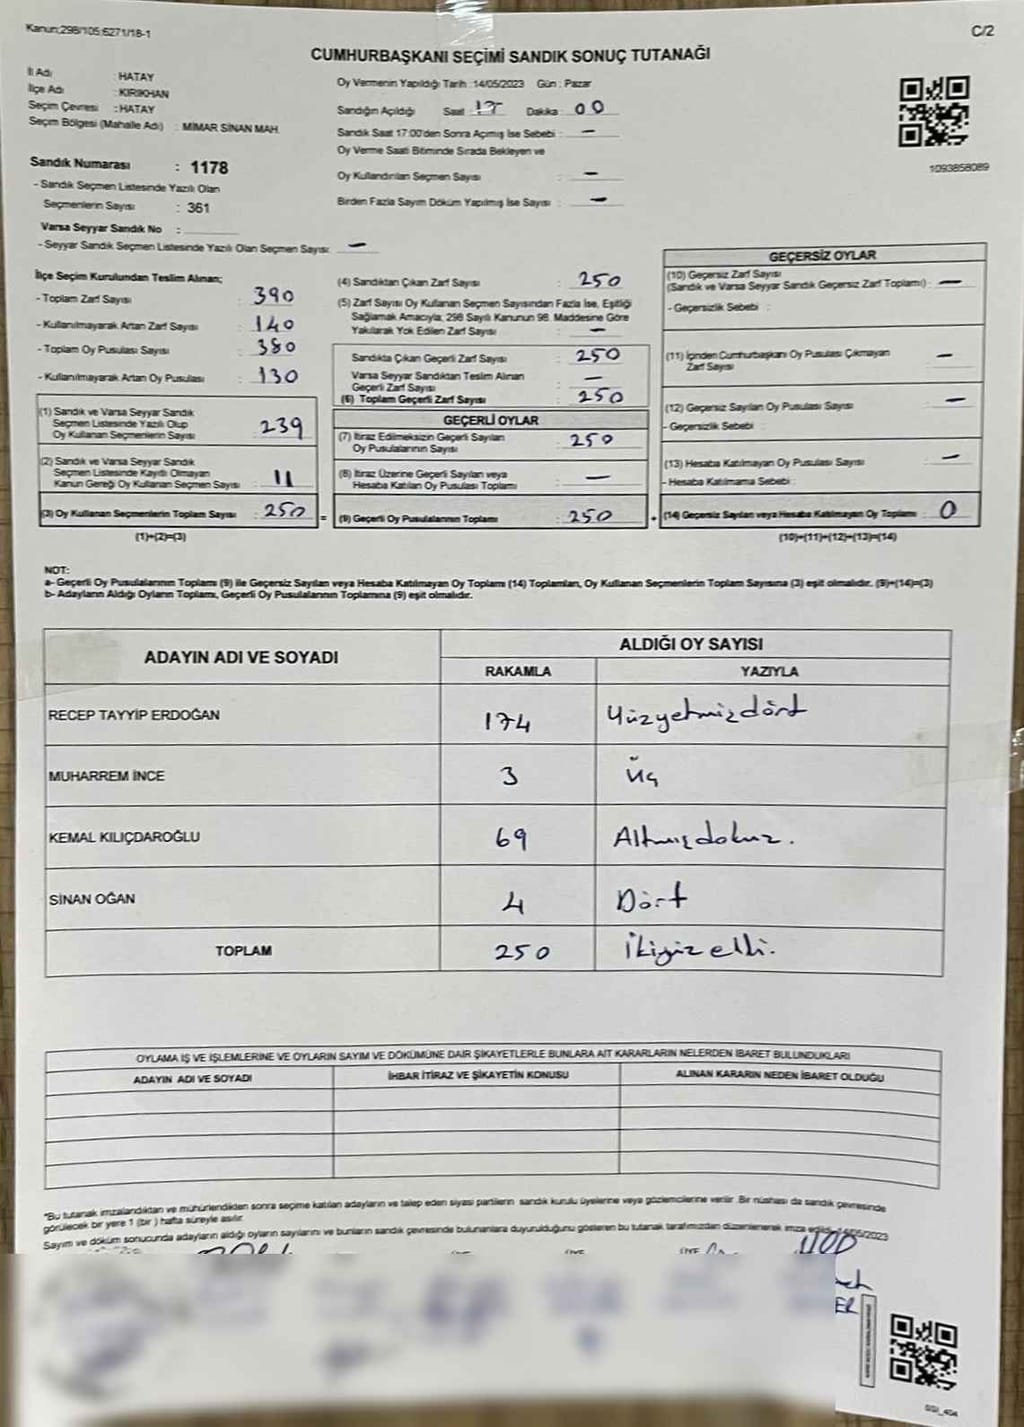 Kanun;298/105;6271/18-1
C/2
CUMHURBAŞKANI SEÇİMİ SANDIK SONUÇ TUTANAĞI
İl Adı : HATAY
İlçe Adı : KIRIKHAN
Seçim Çevresi : HATAY
Seçim Bölgesi (Mahalle Adı) : MİMAR SİNAN MAH.
Sandık Numarası : 1178
- Sandık Seçmen Listesinde Yazılı Olan
Seçmenlerin Sayısı : 361
Varsa Seyyar Sandık No :
- Seyyar Sandık Seçmen Listesinde Yazılı Olan Seçmen Sayısı: —
Oy Vermenin Yapıldığı Tarih : 14/05/2023 Gün : Pazar
Sandığın Açıldığı Saat : 17 Dakika : 00
Sandık Saat 17:00'den Sonra Açımış İse Sebebi : —
Oy Verme Saati Bitiminde Sırada Bekleyen ve
Oy Kullandırılan Seçmen Sayısı : —
Birden Fazla Sayım Döküm Yapılmış İse Sayısı : —
1093858089
İlçe Seçim Kurulundan Teslim Alınan;
- Toplam Zarf Sayısı : 390
- Kullanılmayarak Artan Zarf Sayısı : 140
- Toplam Oy Pusulası Sayısı : 380
- Kullanılmayarak Artan Oy Pusulası : 130
(1) Sandık ve Varsa Seyyar Sandık
Seçmen Listesinde Yazılı Olup
Oy Kullanan Seçmenlerin Sayısı : 239
(2) Sandık ve Varsa Seyyar Sandık
Seçmen Listesinde Kaydı Olmayan
Kanun Gereği Oy Kullanan Seçmen Sayısı : 11
(3) Oy Kullanan Seçmenlerin Toplam Sayısı : 250
(1)+(2)=(3)
(4) Sandıktan Çıkan Zarf Sayısı : 250
(5) Zarf Sayısı Oy Kullanan Seçmen Sayısından Fazla İse, Eşitliği
Sağlamak Amacıyla; 298 Sayılı Kanunun 98. Maddesine Göre
Yakılarak Yok Edilen Zarf Sayısı : —
Sandıkta Çıkan Geçerli Zarf Sayısı : 250
Varsa Seyyar Sandıktan Teslim Alınan
Geçerli Zarf Sayısı : —
(6) Toplam Geçerli Zarf Sayısı : 250
GEÇERLİ OYLAR
(7) İtiraz Edilmeksizin Geçerli Sayılan
Oy Pusulalarının Sayısı : 250
(8) İtiraz Üzerine Geçerli Sayılan veya
Hesaba Katılan Oy Pusulası Toplamı : —
= (9) Geçerli Oy Pusulalarının Toplamı : 250
GEÇERSİZ OYLAR
(10) Geçersiz Zarf Sayısı
(Sandık ve Varsa Seyyar Sandık Geçersiz Zarf Toplamı) : —
- Geçersizlik Sebebi :
(11) İçinden Cumhurbaşkanı Oy Pusulası Çıkmayan
Zarf Sayısı : —
(12) Geçersiz Sayılan Oy Pusulası Sayısı : —
- Geçersizlik Sebebi :
(13) Hesaba Katılmayan Oy Pusulası Sayısı : —
- Hesaba Katılmama Sebebi :
+ (14) Geçersiz Sayılan veya Hesaba Katılmayan Oy Toplamı : 0
(10)+(11)+(12)+(13)=(14)
NOT:
a- Geçerli Oy Pusulalarının Toplamı (9) ile Geçersiz Sayılan veya Hesaba Katılmayan Oy Toplamı (14) Toplamları, Oy Kullanan Seçmenlerin Toplam Sayısına (3) eşit olmalıdır. (9)+(14)=(3)
b- Adayların Aldığı Oyların Toplamı, Geçerli Oy Pusulalarının Toplamına (9) eşit olmalıdır.
ADAYIN ADI VE SOYADI
ALDIĞI OY SAYISI
RAKAMLA YAZIYLA
RECEP TAYYİP ERDOĞAN 174 Yüzyetmişdört
MUHARREM İNCE 3 üç
KEMAL KILIÇDAROĞLU 69 Altmışdokuz.
SİNAN OĞAN 4 Dört
TOPLAM 250 İkiyüzelli.
OYLAMA İŞ VE İŞLEMLERİNE VE OYLARIN SAYIM VE DÖKÜMÜNE DAİR ŞİKAYETLERLE BUNLARA AİT KARARLARIN NELERDEN İBARET BULUNDUKLARI
ADAYIN ADI VE SOYADI İHBAR İTİRAZ VE ŞİKAYETİN KONUSU ALINAN KARARIN NEDEN İBARET OLDUĞU
*Bu tutanak imzalandıktan ve mühürlendikten sonra seçime katılan adayların ve talep eden siyasi partilerin sandık kurulu üyelerine veya gözlemcilerine verilir. Bir nüshası da sandık çevresinde
görülecek bir yere 1 (bir ) hafta süreyle asılır.
Sayım ve döküm sonucunda adayların aldığı oyların sayılarını ve bunların sandık çevresinde bulunanlara duyurulduğunu gösteren bu tutanak tarafımızdan düzenlenerek imza edildi. 14/05/2023